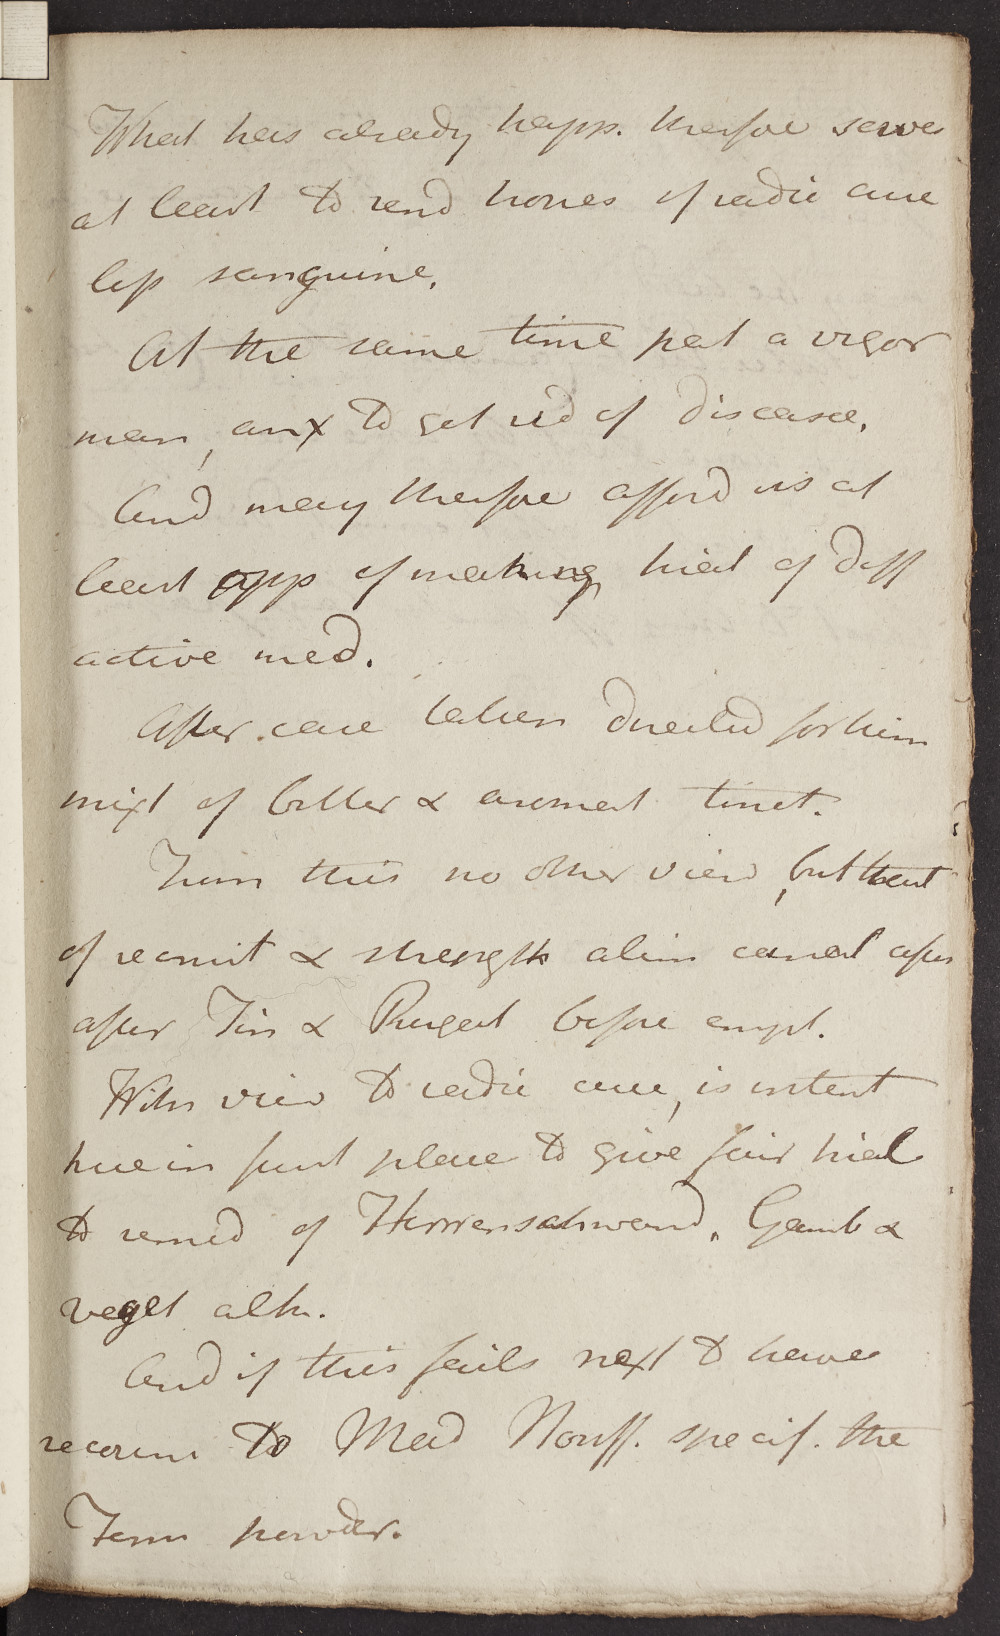 What has already happ. therfore serves
at least to rend hopes of radic cure
less sanguine.
At the same time pat a vigor
man, anx to get rid of disease.
And may therfore afford us at
least opp of making trial of diff
active med.
After case taken directed for him
mixt of bitter & aromat tinct.
From this no other view, but that
of recruit & strength alim canal after
after Tin & Purgat before empl.
With view to radic cure, is intent
here in first place to give fair trial
to remed of Herrenschwand, Gamb &
veget alk.
And if this fails next to have
recourse to Mad Nouff. specif. the
Fern powder.